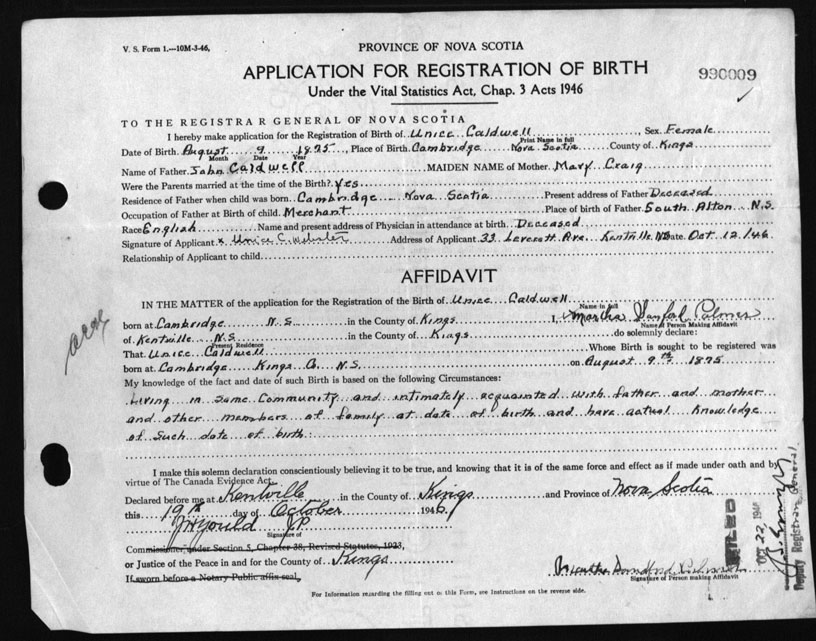 V. S. Form 1.—10M-3-46,
PROVINCE OF NOVA SCOTIA
APPLICATION FOR REGISTRATION OF BIRTH
990009
Under the Vital Statistics Act, Chap. 3 Acts 1946
TO THE REGISTRAR GENERAL OF NOVA SCOTIA
I hereby make application for the Registration of Birth of Unice Caldwell, Sex Female
Print Name in full
Date of Birth August 9 1875, Place of Birth Cambridge Nova Scotia County of Kings
Month Date Year
Name of Father John Caldwell MAIDEN NAME of Mother Mary Craig
Were the Parents married at the time of the Birth? Yes
Residence of Father when child was born Cambridge Nova Scotia Present address of Father Deceased
Occupation of Father at Birth of child Merchant Place of birth of Father South Alton N.S.
Race English Name and present address of Physician in attendance at birth Deceased
Signature of Applicant x Unice C. Webster Address of Applicant 33 Leverett Ave Kentville NS Date Oct 12/46
Relationship of Applicant to child
AFFIDAVIT
IN THE MATTER of the application for the Registration of the Birth of Unice Caldwell
Name in full
born at Cambridge N.S. in the County of Kings I, Martha Palmer
Name of Person Making Affidavit
of Kentville N.S. in the County of Kings do solemnly declare:
Present Residence
That Unice Caldwell Whose Birth is sought to be registered was
born at Cambridge Kings Co. N.S. on August 9th 1875
My knowledge of the fact and date of such Birth is based on the following Circumstances:
Living in Same Community and intimately acquainted with father and mother
and other members of family at date of birth and have actual Knowledge
of such date of birth.
I make this solemn declaration conscientiously believing it to be true, and knowing that it is of the same force and effect as if made under oath and by
virtue of The Canada Evidence Act.
Declared before me at Kentville in the County of Kings and Province of Nova Scotia
this 19th day of October 1946.
JP
Signature of
Commissioner under Section 5, Chapter 38, Revised Statutes, 1923,
or Justice of the Peace in and for the County of Kings
If sworn before a Notary Public affix seal,
Martha Sandford Palmer
Signature of Person making Affidavit
FILED
OCT 22 1946
Deputy Registrar General
For Information regarding the filling out of this Form, see Instructions on the reverse side.